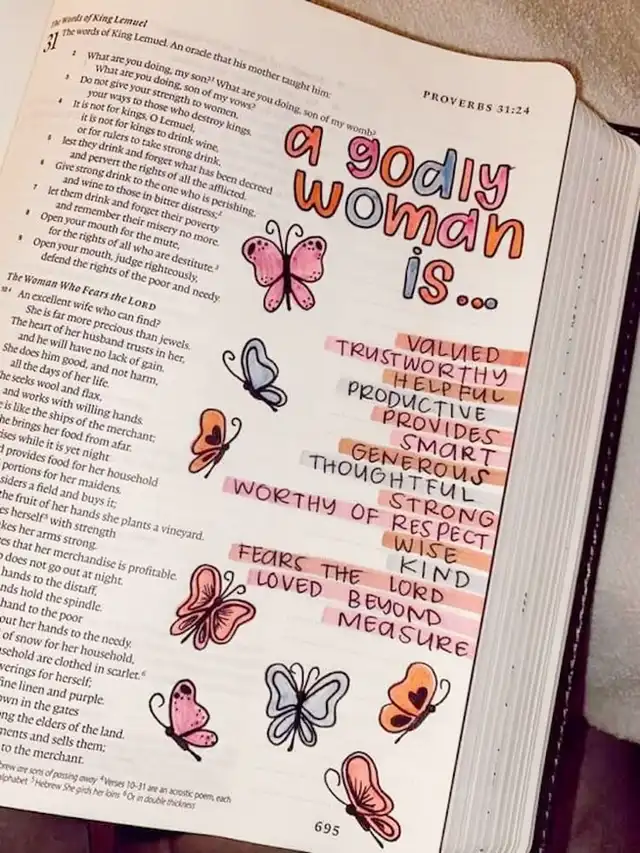 The Words of King Lemuel
31 The words of King Lemuel. An oracle that his mother taught him:
2 What are you doing, my son?¹ What are you doing, son of my womb?
What are you doing, son of my vows?
3 Do not give your strength to women,
your ways to those who destroy kings.
4 It is not for kings, O Lemuel,
it is not for kings to drink wine,
or for rulers to take strong drink,
5 lest they drink and forget what has been decreed
and pervert the rights of all the afflicted.
6 Give strong drink to the one who is perishing,
and wine to those in bitter distress;²
7 let them drink and forget their poverty
and remember their misery no more.
8 Open your mouth for the mute,
for the rights of all who are destitute.³
9 Open your mouth, judge righteously,
defend the rights of the poor and needy.
The Woman Who Fears the LORD
10 ⁴ An excellent wife who can find?
She is far more precious than jewels.
The heart of her husband trusts in her,
and he will have no lack of gain.
She does him good, and not harm,
all the days of her life.
he seeks wool and flax,
and works with willing hands.
e is like the ships of the merchant;
he brings her food from afar.
ises while it is yet night
d provides food for her household
portions for her maidens.
siders a field and buys it;
the fruit of her hands she plants a vineyard.
es herself⁵ with strength
kes her arms strong.
es that her merchandise is profitable.
p does not go out at night.
hands to the distaff,
nds hold the spindle.
hand to the poor
out her hands to the needy.
of snow for her household,
sehold are clothed in scarlet.⁶
verings for herself;
fine linen and purple.
own in the gates
ng the elders of the land.
ments and sells them;
to the merchant.
brew are sons of passing away ⁴ Verses 10–31 are an acrostic poem, each
alphabet ⁵ Hebrew She girds her loins ⁶ Or in double thickness
695
PROVERBS 31:24
a godly
woman
is...
VALUED
TRUSTWORTHY
HELPFUL
PRODUCTIVE
PROVIDES
SMART
GENEROUS
THOUGHTFUL
STRONG
WORTHY OF RESPECT
WISE
KIND
FEARS THE LORD
LOVED BEYOND
MEASURE